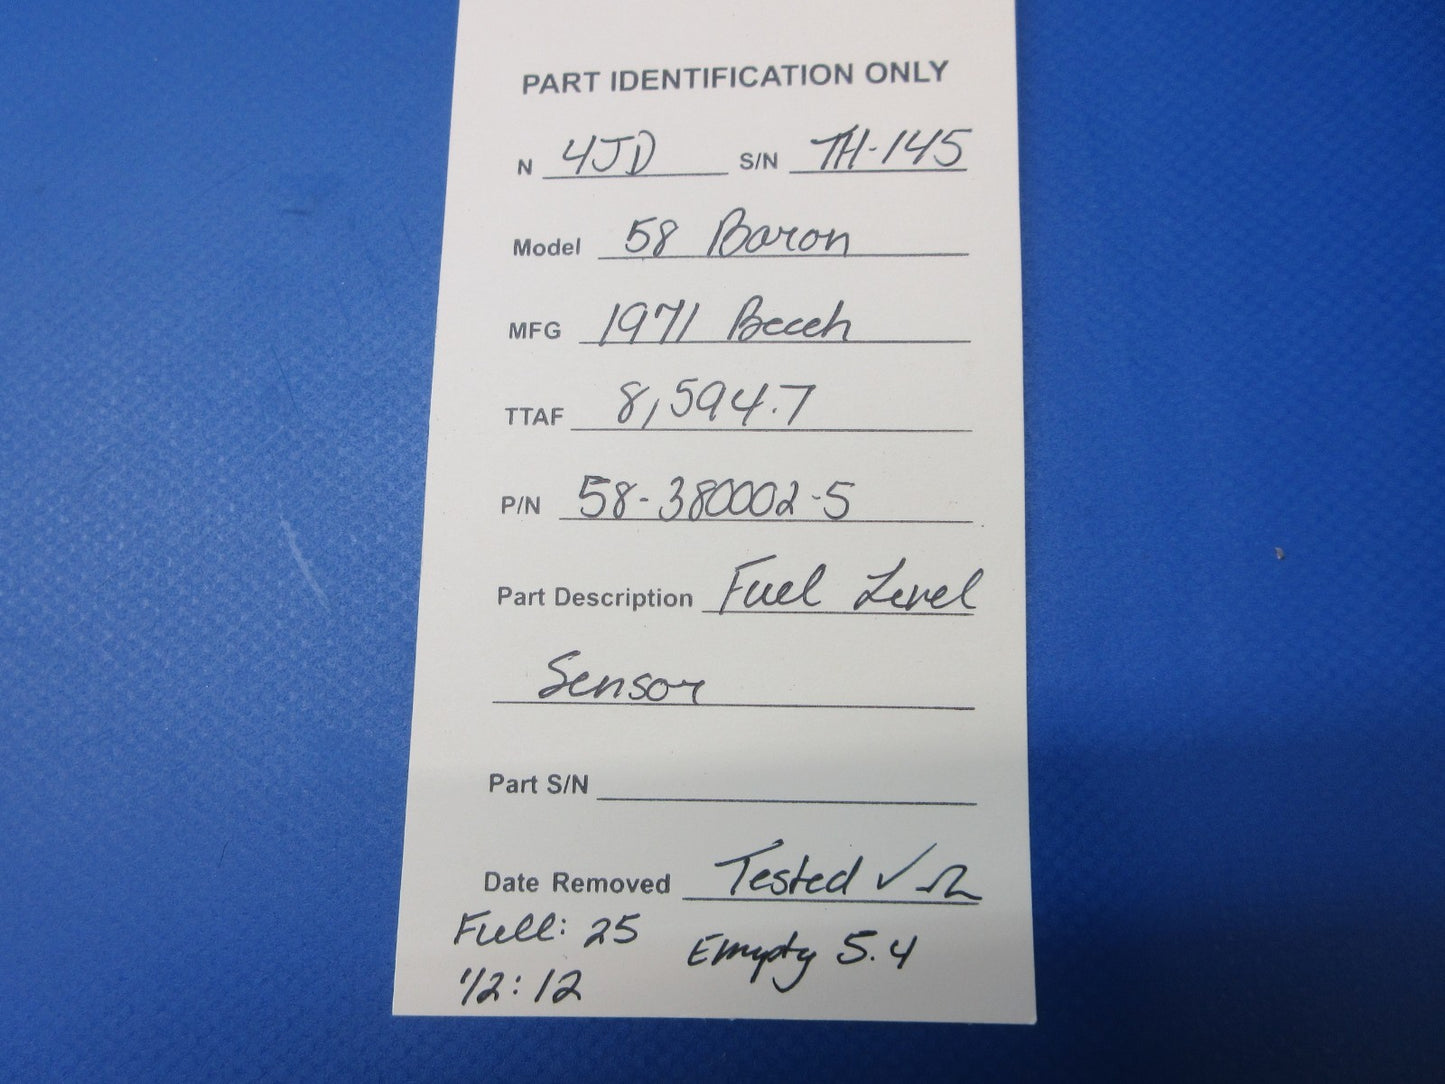 PART IDENTIFICATION ONLY
N 4JD S/N TH-145
Model 58 Baron
MFG 1971 Beech
TTAF 8,594.7
P/N 58-380002-5
Part Description Fuel Level
Sensor
Part S/N
Date Removed Tested ✓ Ω
Full: 25 Empty 5.4
1/2: 12